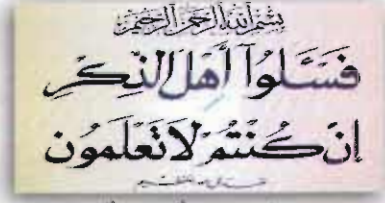 بِسْمِ اللَّهِ الرَّحْمَٰنِ الرَّحِيمِ
فَسْـَٔلُوٓا۟ أَهْلَ الذِّكْرِ
إِن كُنتُمْ لَا تَعْلَمُونَ